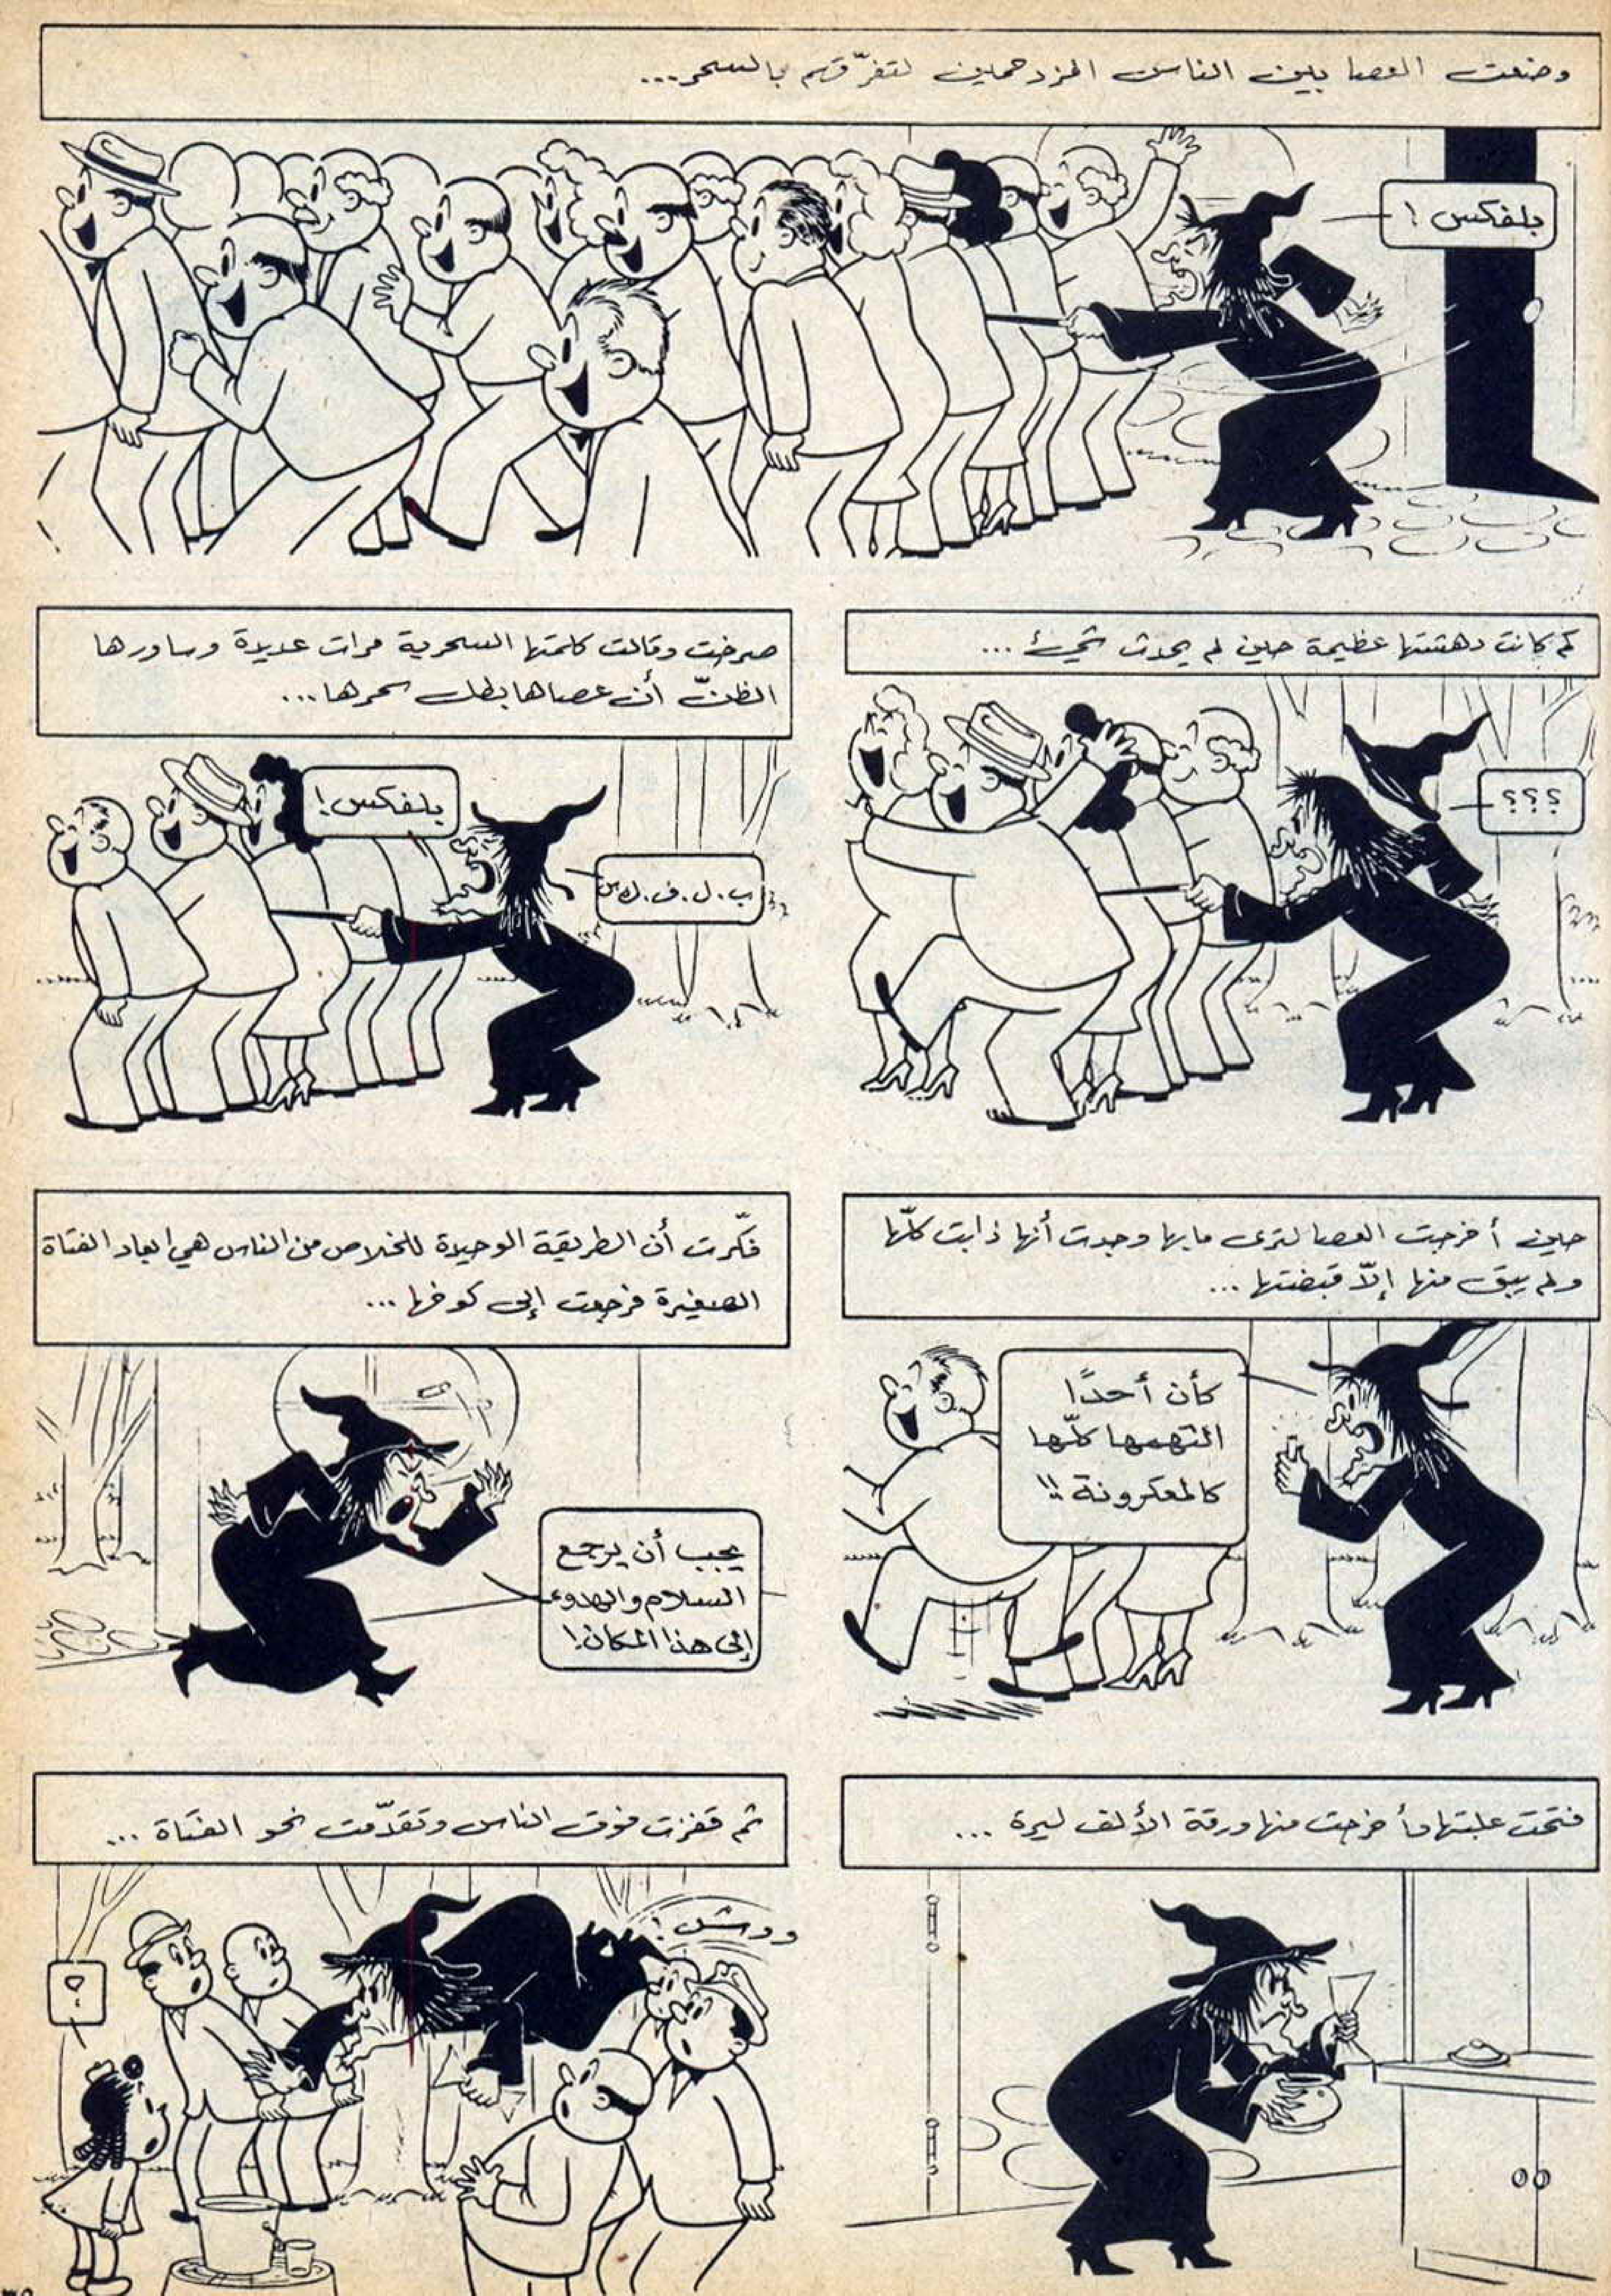 وضعت العصا بين الناس المزدحمين لتفرّقهم بالسحر...
بلفكس !
كم كانت دهشتها عظيمة حين لم يحدث شيء ...
؟؟؟
صرخت وقالت كلمتها السحرية مرات عديدة وساورها
الظنّ أن عصاها بطل سحرها...
بلفكس !
ب . ل . ف . ك س
حين أخرجت العصا لترى ما بها وجدت أنها ذابت كلّها
ولم يبق منها إلاّ قبضتها ...
كأن أحدًا
التهمها كلّها
كالمعكرونة !!
فكّرت أن الطريقة الوحيدة للخلاص من الناس هي ابعاد الفتاة
الصغيرة فرجعت إلى كوخها ...
يجب أن يرجع
السلام والهدوء
إلى هذا المكان !
فتحت علبتها وأخرجت منها ورقة الألف ليرة ...
ثم قفزت فوق الناس وتقدّمت نحو الفتاة ...
ووش !
؟